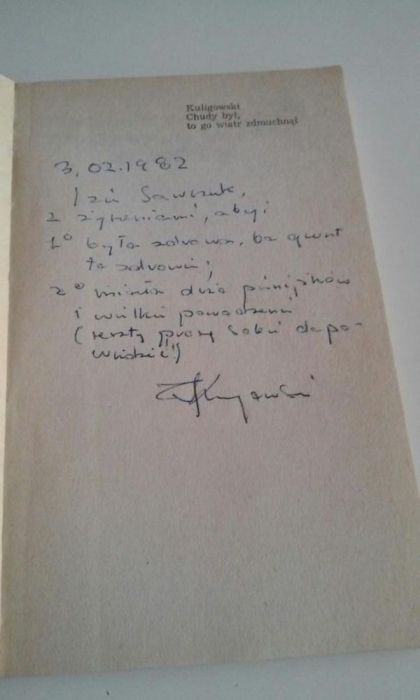 Kuligowski
Chudy był,
to go wiatr zdmuchnął
3.02.1982
Izie Sawczuk,
z życzeniami, aby:
1° była zdrowa, bo grunt
to zdrowie;
2° miała dużo pieniążków
i wielkie powodzenie
(resztę proszę sobie dopo-
wiedzieć!)